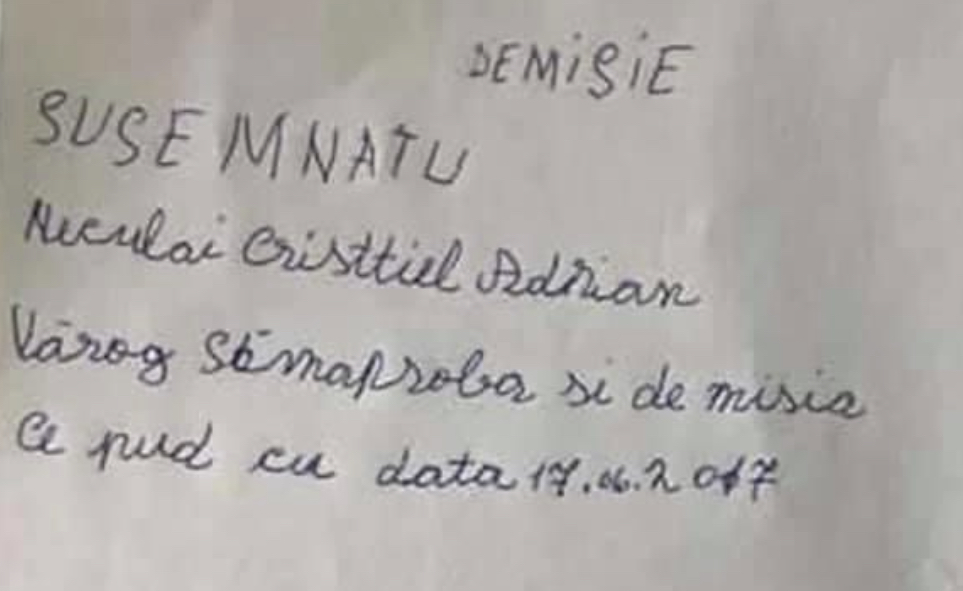 DEMiSiE
SUSEMNATU
Neculai Cristtiel Adrian
Vărog Sĕmaproba si de misia
Ce pud cu data 17.06.2017